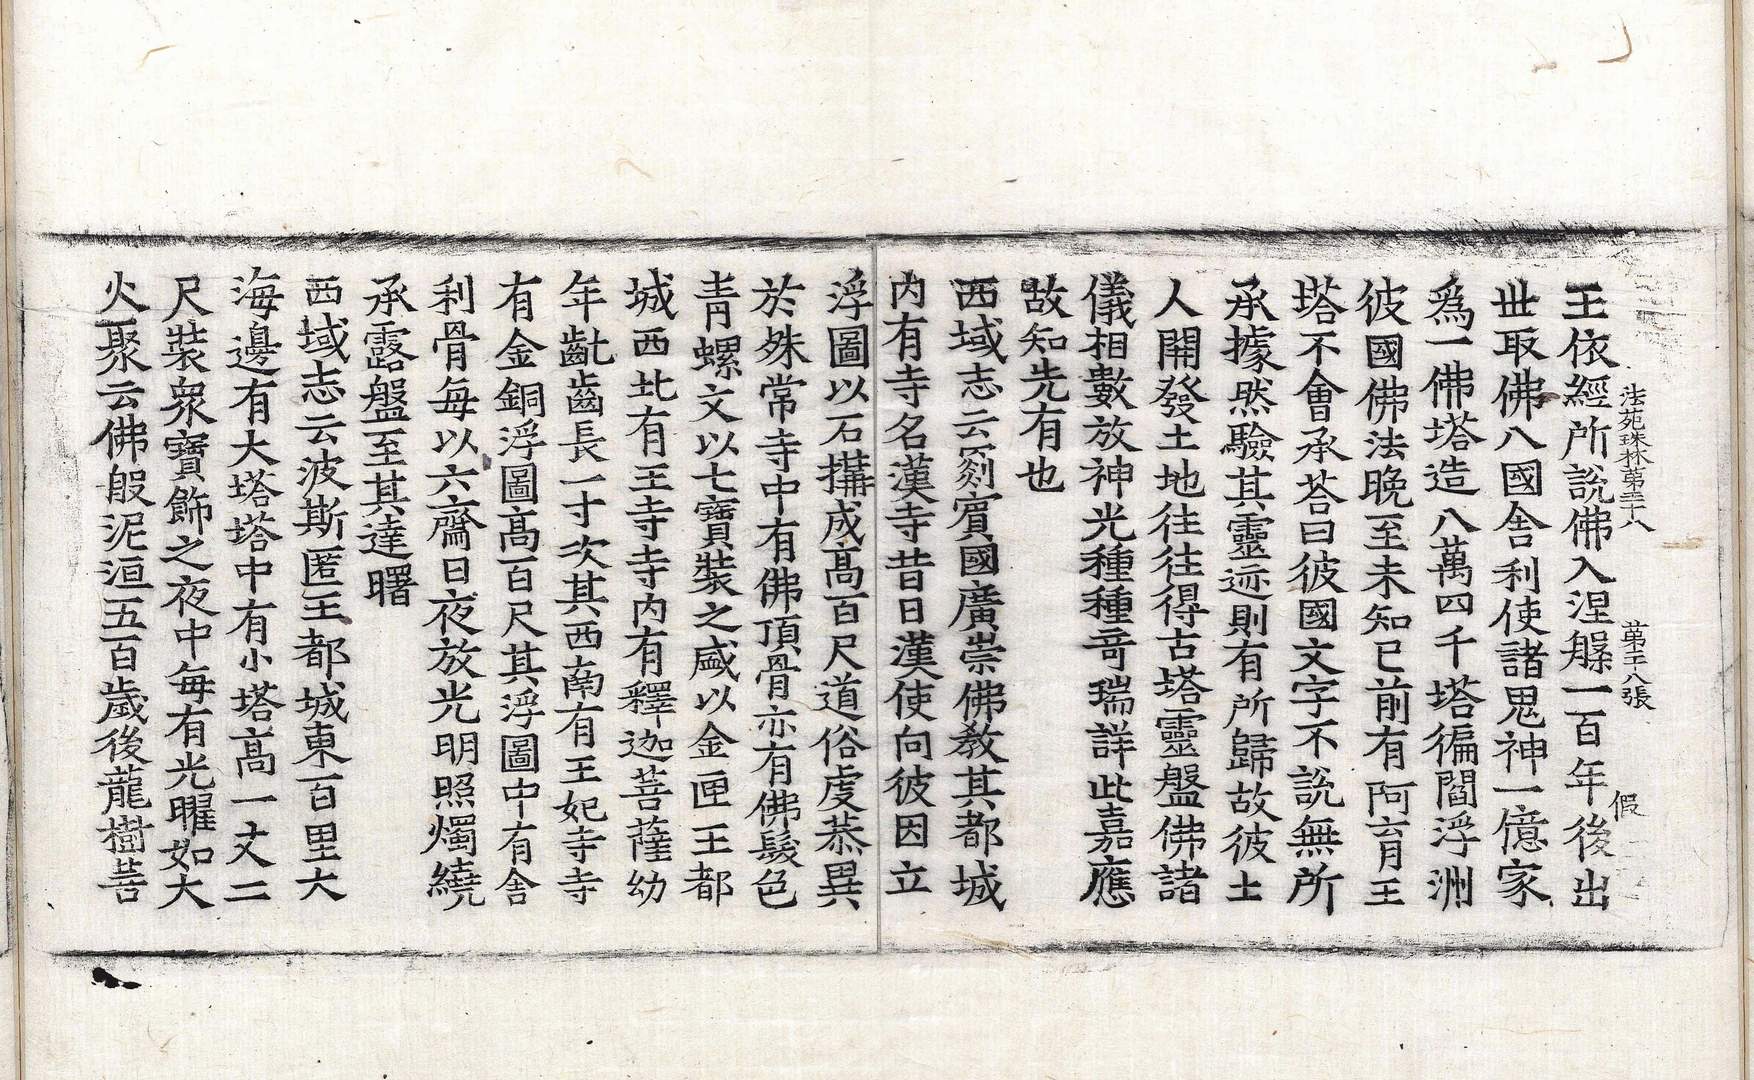 法苑珠林第三十八　第二十八張　假
王依經所說佛入涅槃一百年後出
世取佛八國舍利使諸鬼神一億家
爲一佛塔造八萬四千塔徧閻浮洲
彼國佛法晚至未知已前有阿育王
塔不會承荅曰彼國文字不說無所
承據然驗其靈迹則有所歸故彼土
人開發土地往往得古塔靈盤佛諸
儀相數放神光種種奇瑞詳此嘉應
故知先有也
西域志云罽賓國廣崇佛教其都城
内有寺名漢寺昔日漢使向彼因立
浮圖以石搆成高百尺道俗虔恭異
於殊常寺中有佛頂骨亦有佛髮色
青螺文以七寶裝之盛以金匣王都
城西北有王寺寺内有釋迦菩薩幼
年齔齒長一寸次其西南有王妃寺寺
有金銅浮圖高百尺其浮圖中有舍
利骨每以六齋日夜放光明照燭繞
承露盤至其達曙
西域志云波斯匿王都城東百里大
海邊有大塔塔中有小塔高一丈二
尺裝衆寶飾之夜中每有光曜如大
火聚云佛般泥洹五百歲後龍樹菩